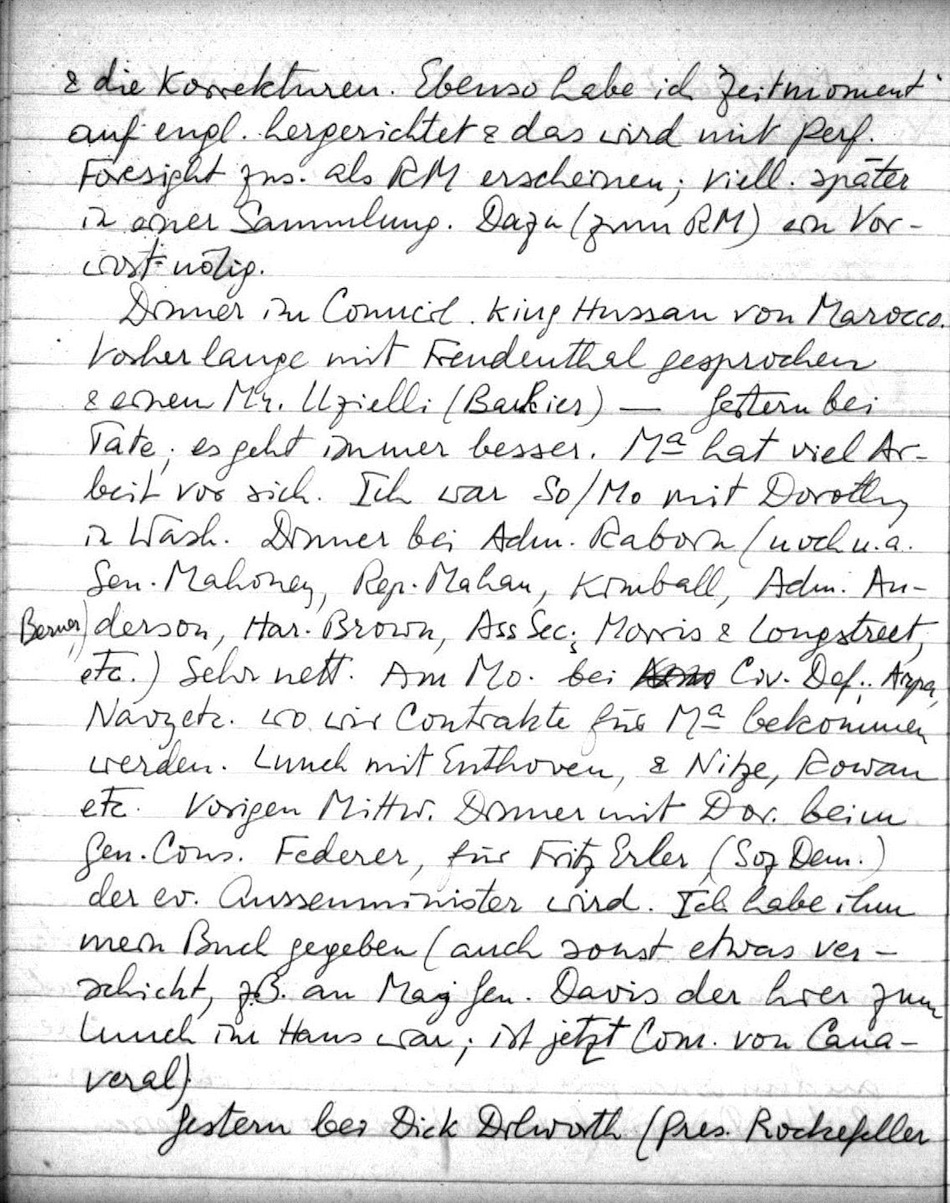 & die Korrekturen. Ebenso habe ich "Zeitmoment"
auf engl. hergerichtet & das wird mit Perf.
Foresight zus. als RM erscheinen; viell. später
in einer Sammlung. Dazu (zum RM) ein Vor-
wort nötig.
Dinner im Council. King Hussan von Marocco.
Vorher lange mit Freudenthal gesprochen
& einen Mr. Uzielli (Bankier) — Gestern bei
Tate; es geht immer besser. Ma hat viel Ar-
beit vor sich. Ich war So/Mo mit Dorothy
in Wash. Dinner bei Adm. Raborn (noch u.a.
Sen. Mahoney, Rep. Mahan, Kimball, Adm. An-
derson, Har. Brown, Ass Sec; Morris & Longstreet,
Berner,)
etc.) Sehr nett. Am Mo. bei Civ. Def., Arpa,
Navy etc. wo wir Contrakte für Ma bekommen
werden. Lunch mit Enthoven, & Nitze, Rowan
etc. Vorigen Mittw. Dinner mit Dor. beim
Gen. Cons. Federer, für Fritz Erler (Soz Dem.)
der ev. Aussenminister wird. Ich habe ihm
mein Buch gegeben (auch sonst etwas ver-
schickt, z.B. an Maj Gen. Davis der hier zum
Lunch im Haus war; ist jetzt Com. von Cana-
veral).
Gestern bei Dick Dilworth (Pres. Rockefeller